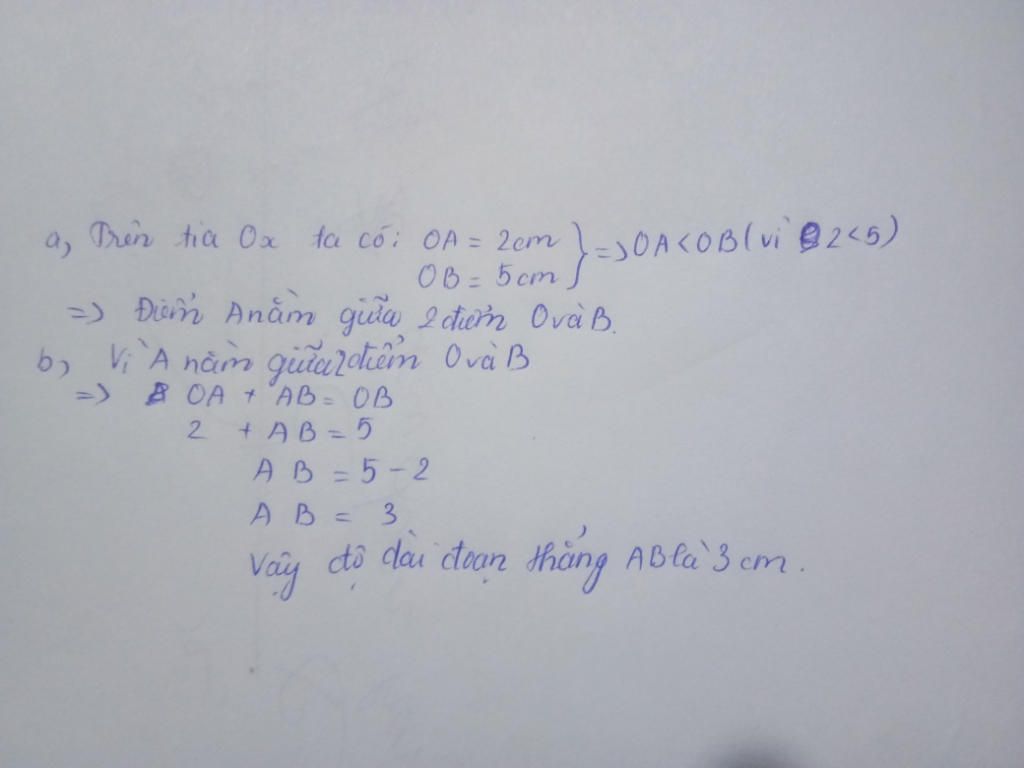 a, Trên tia Ox ta có: OA = 2cm } => OA < OB (vì 2 < 5)
OB = 5cm
=> Điểm A nằm giữa 2 điểm O và B.
b, Vì A nằm giữa 2 điểm O và B
=> OA + AB = OB
2 + AB = 5
AB = 5 - 2
AB = 3
Vậy độ dài đoạn thẳng AB là 3 cm.